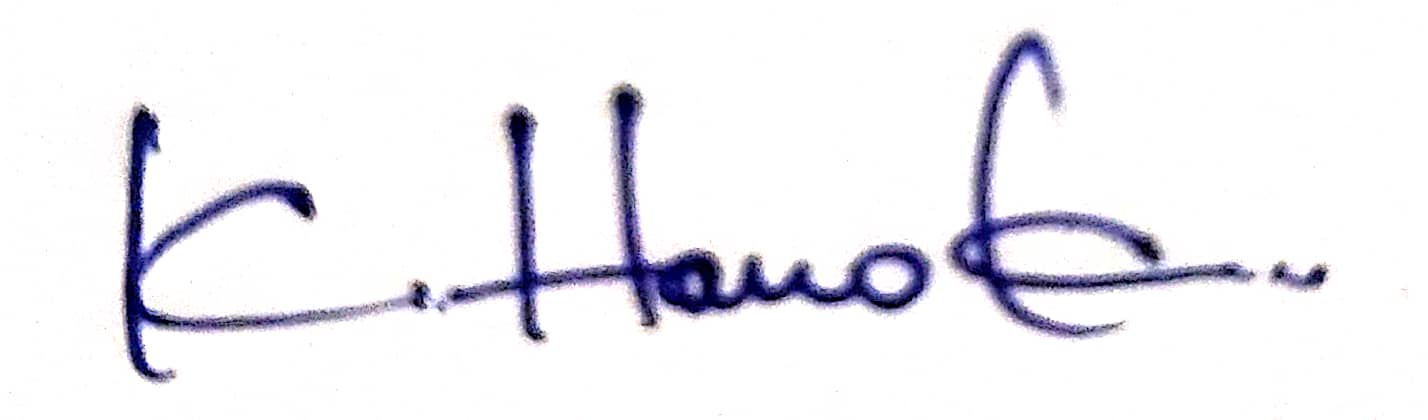 K. Hanok